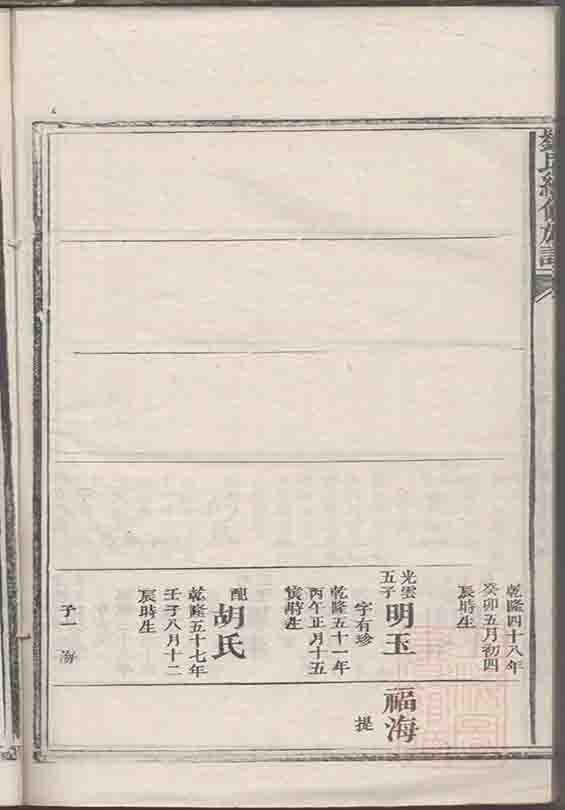 氏續修族譜
乾隆四十八年
癸卯五月初四
辰時生
光雲
五子
明玉
字有珍
乾隆五十一年
丙午正月十五
寅時生
配
胡氏
乾隆五十七年
壬子八月十二
辰時生
子一
海
福海
提